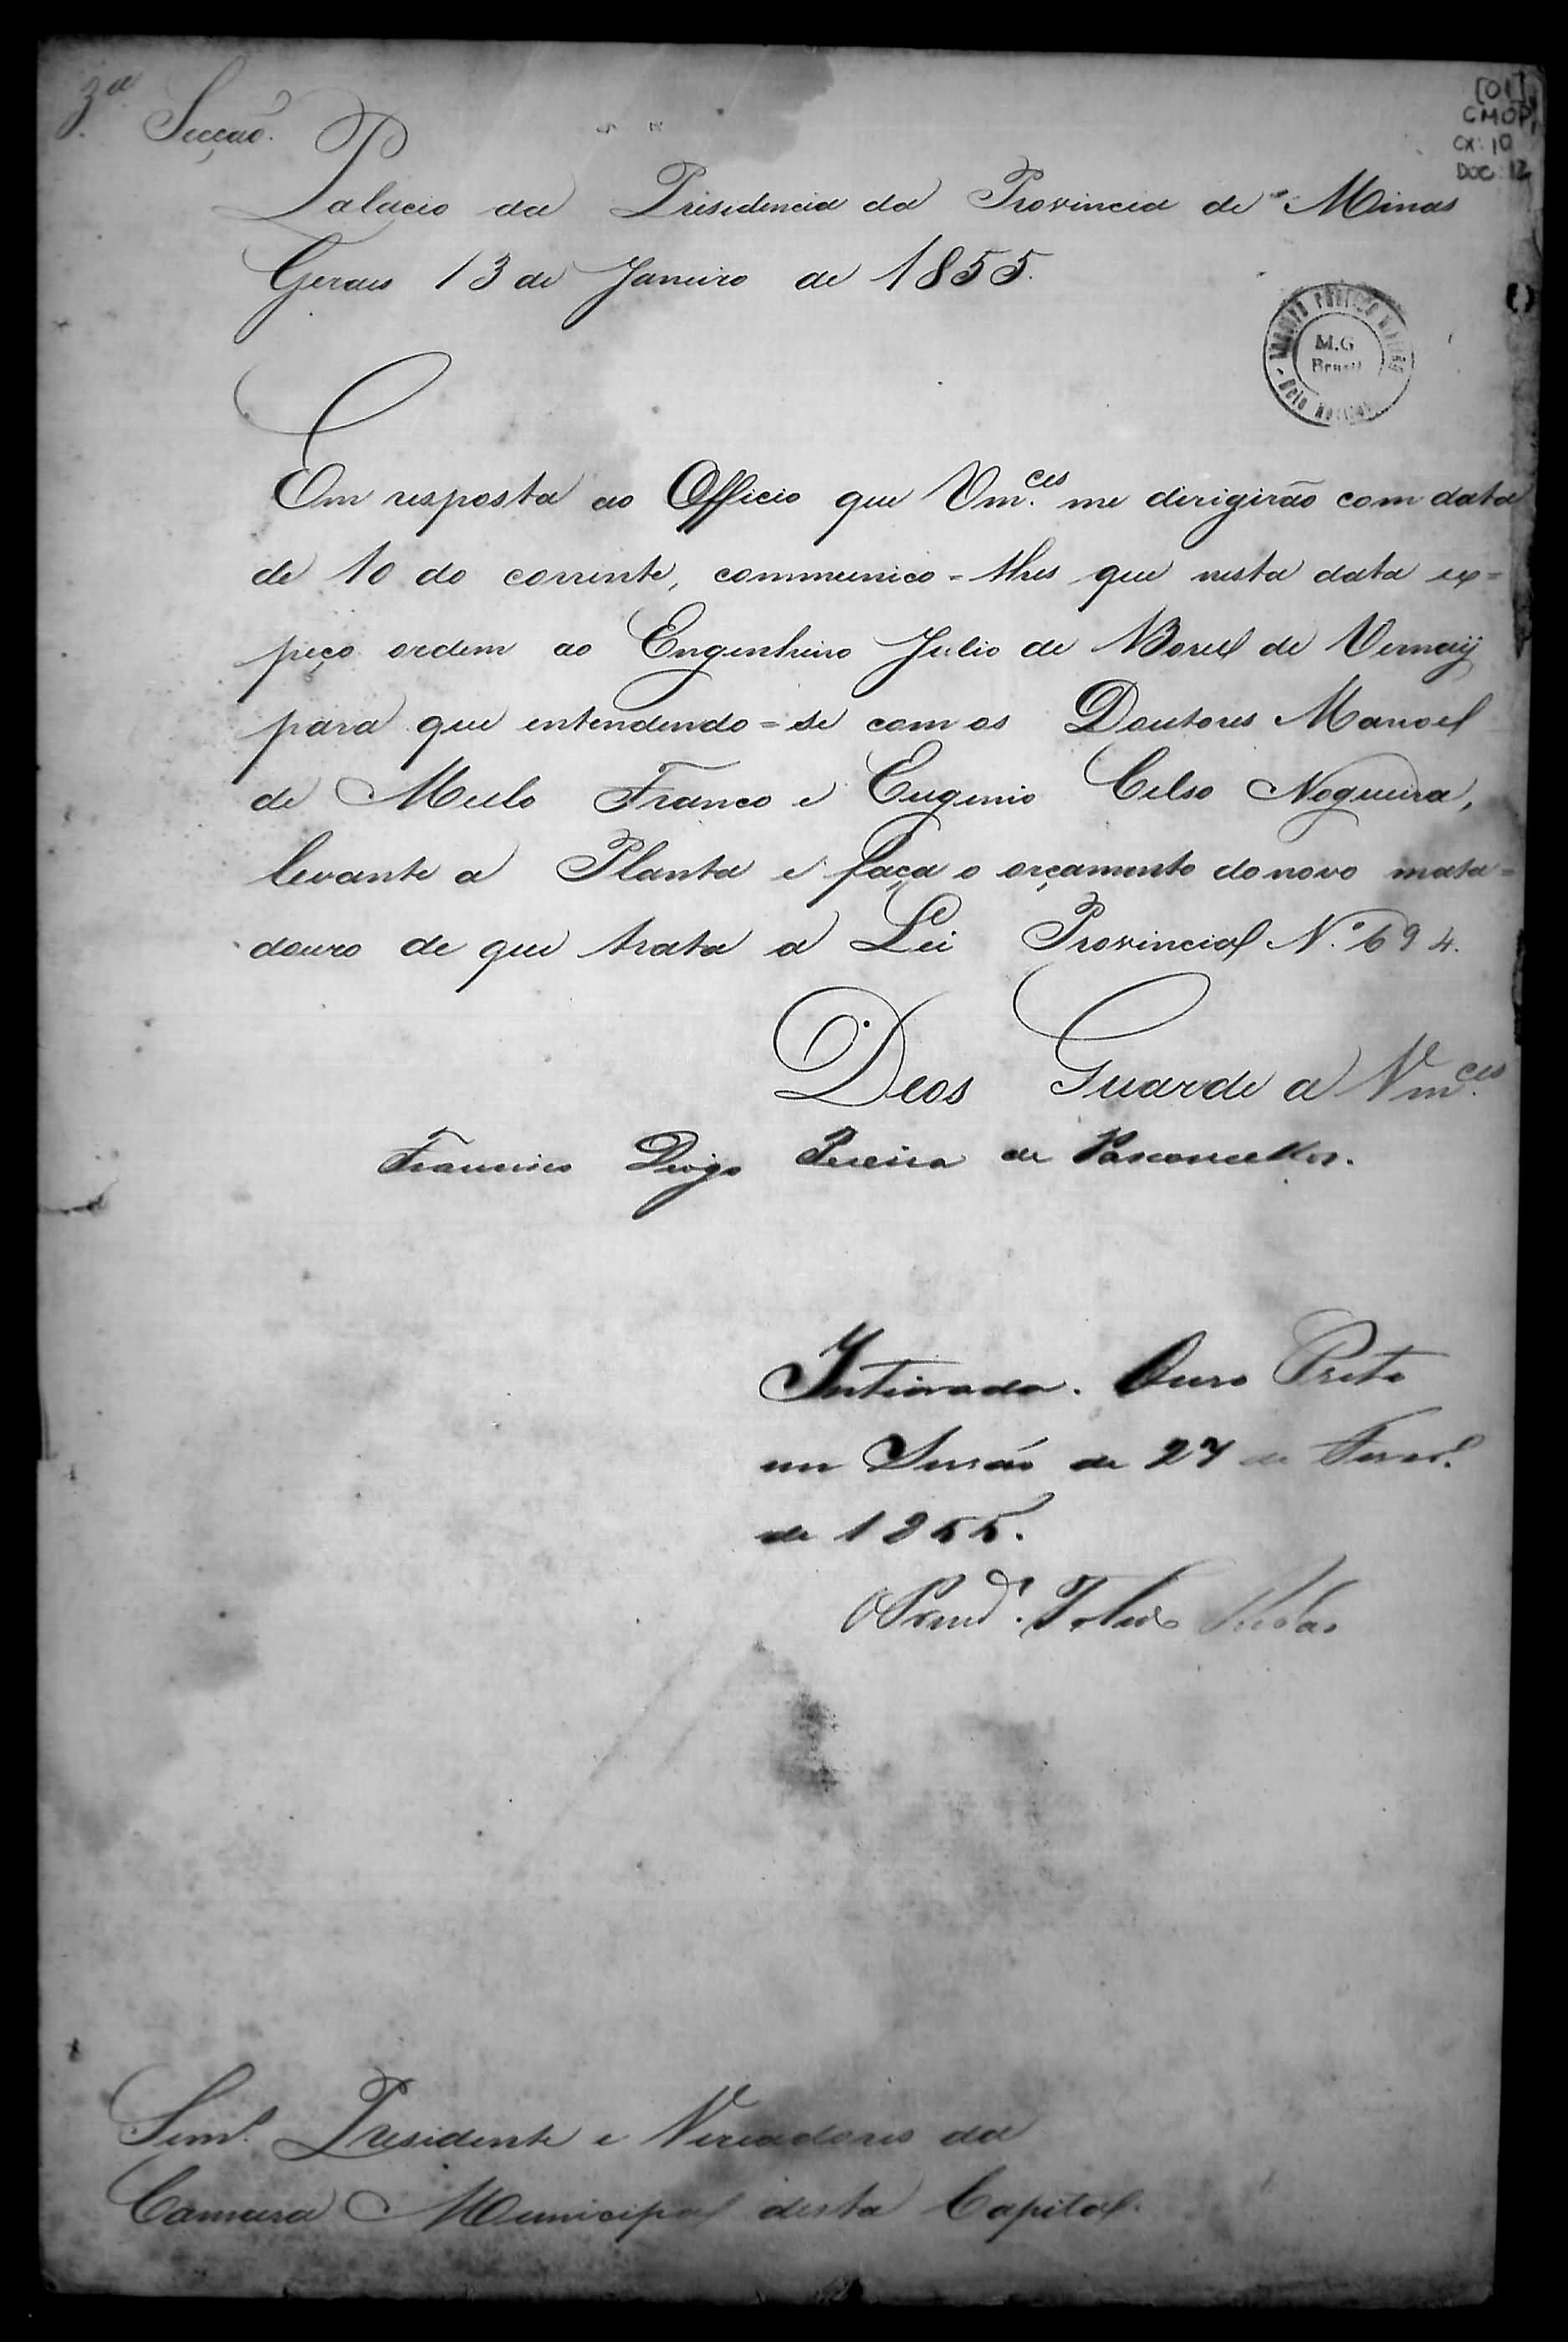 3ª Secção.
[01]
CMOP
CX: 10
DOC: 12
Palacio da Presidencia da Provincia de Minas
Geraes 13 de Janeiro de 1855.
ARCHIVO PUBLICO MINEIRO
M.G
Brasil
Belo Horizonte
Em resposta ao Officio que Vm.ces me dirigirão com data
de 10 do corrente, communico-lhes que nesta data ex=
peço ordem ao Engenheiro Julio de Borel de Vernay
para que entendendo=se com os Doutores Manoel
de Mello Franco e Eugenio Celso Nogueira,
levante a Planta e faça o orçamento do novo mata=
douro de que trata a Lei Provincial N.º 694.
Deos Guarde a Vm.ces
Francisco Diogo Pereira de Vasconcellos.
Inteirada. Ouro Preto
em Sessão de 27 de Fever.º
de 1855.
Snr.s Presidente e Vereadores da
Camara Municipal desta Capital.